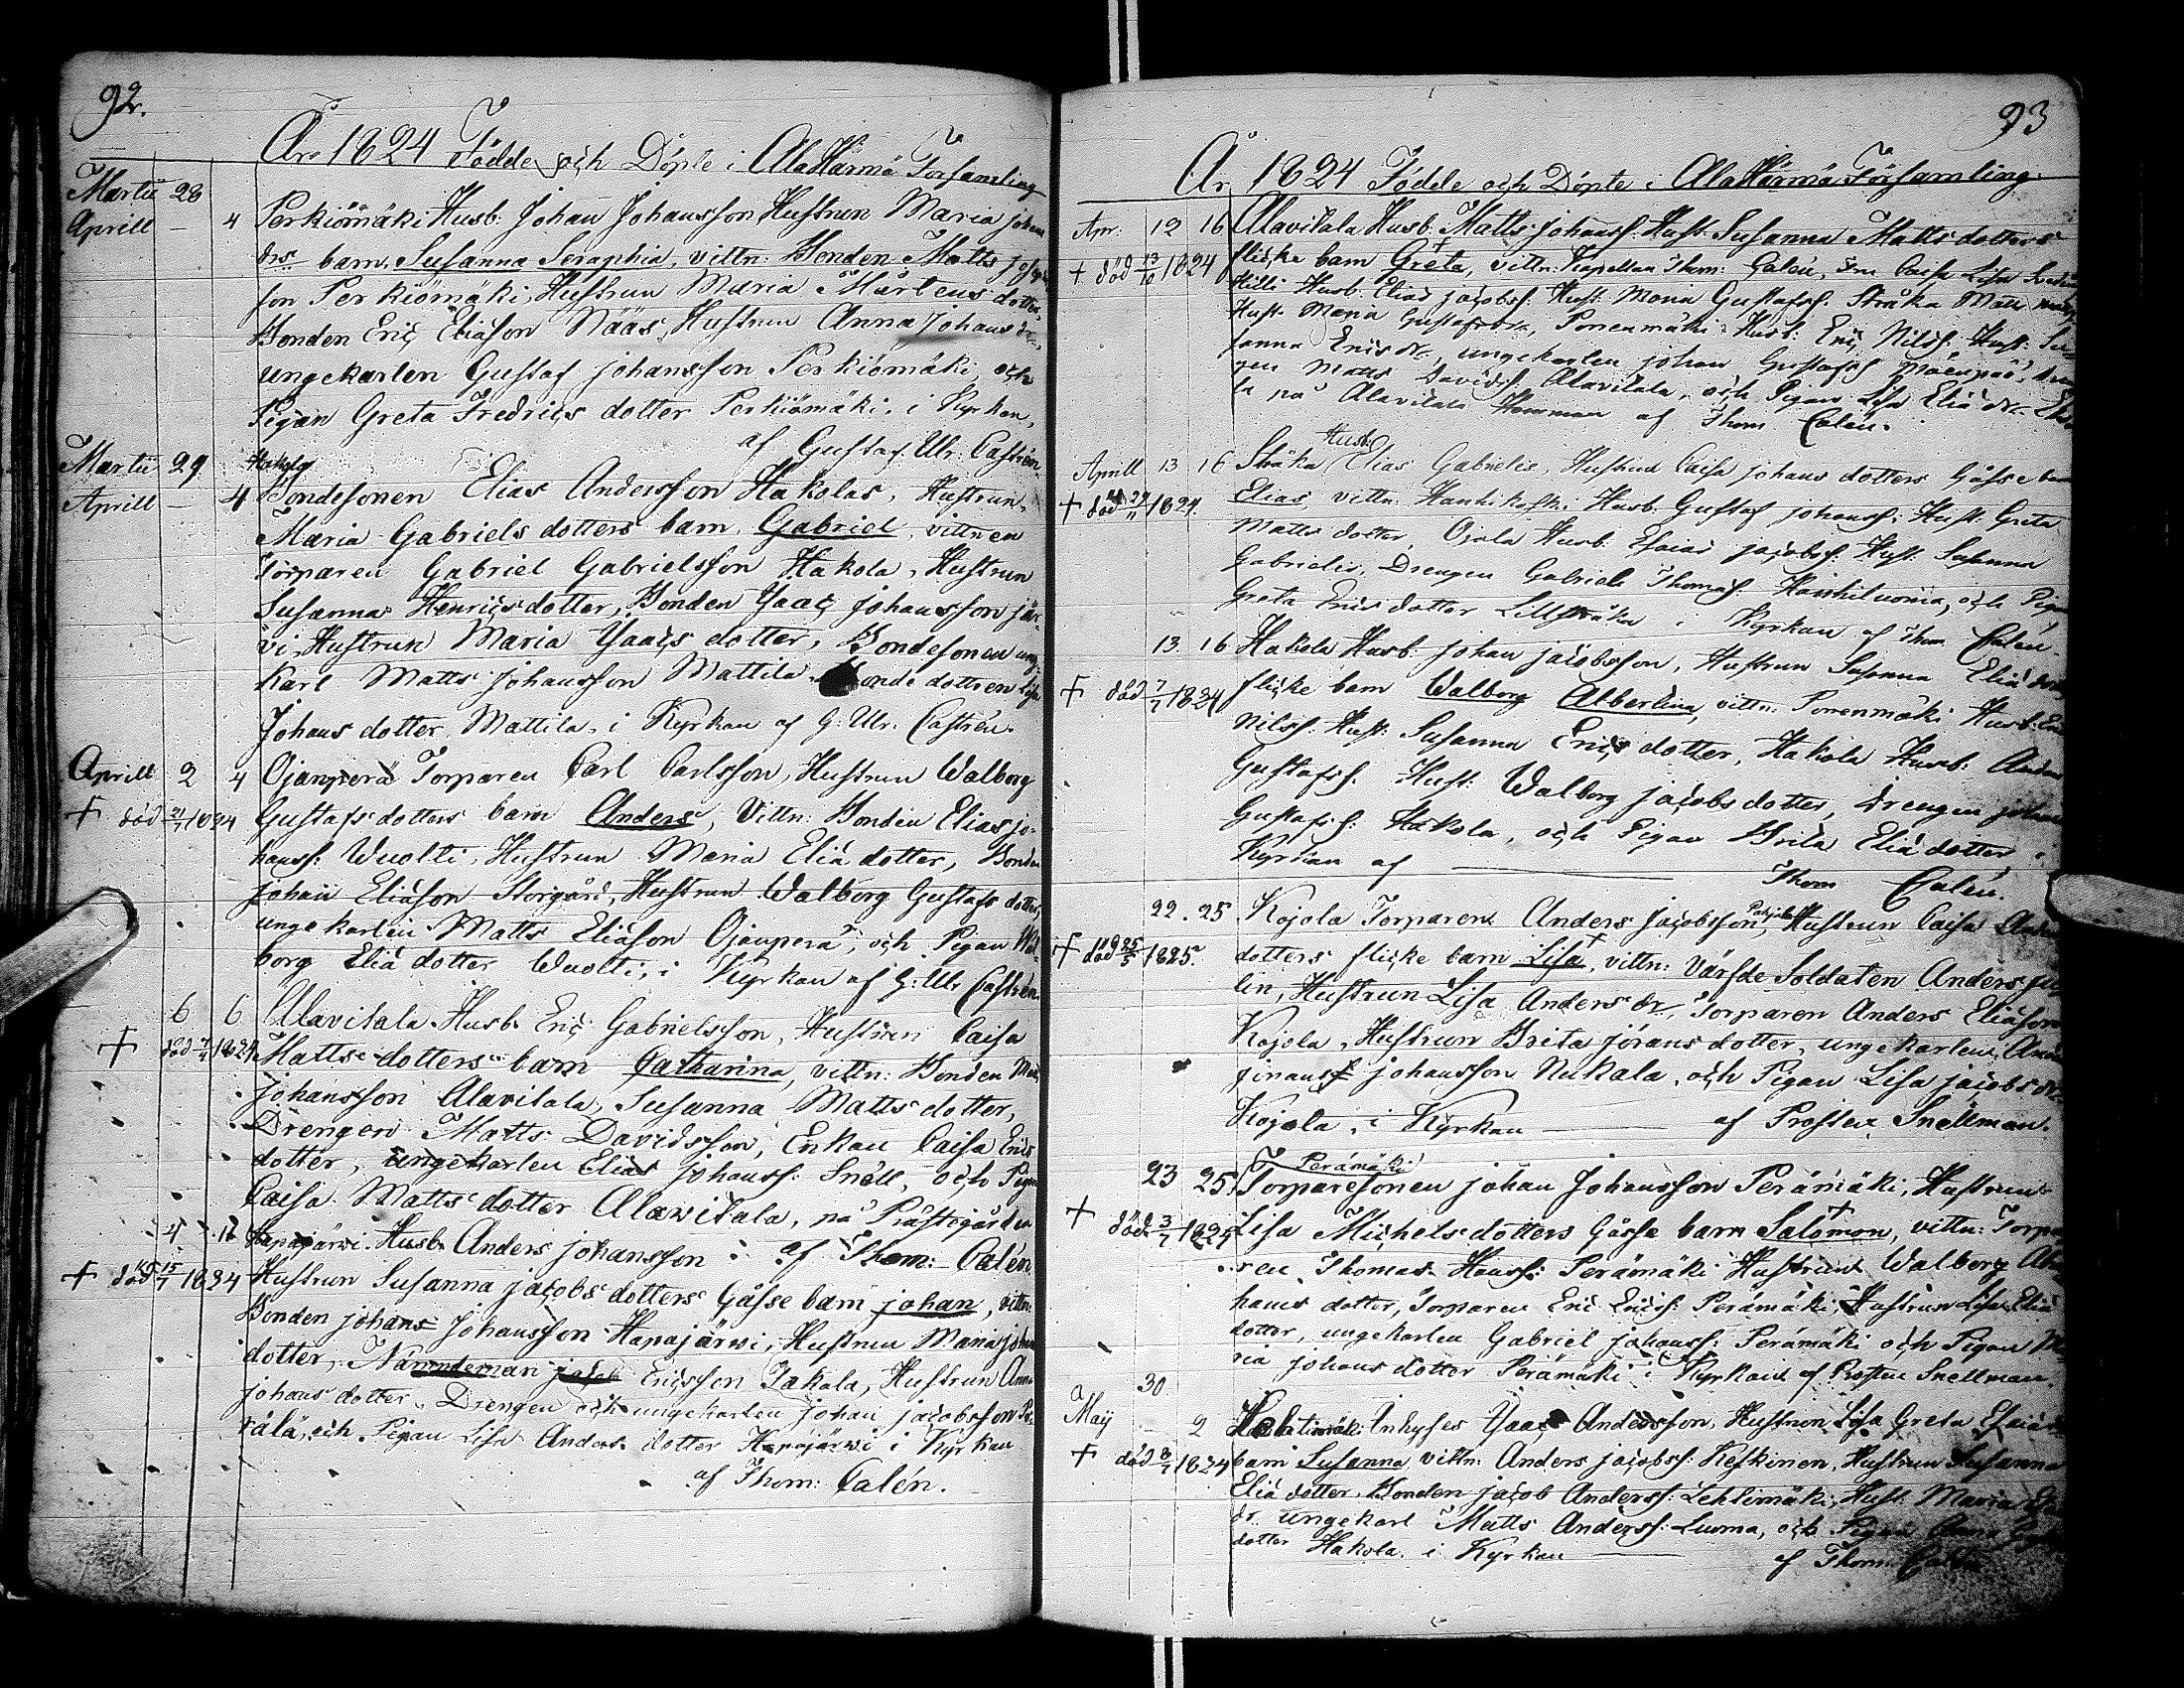 92.
År 1824 Födde och Döpte i AlaHärmä Församling
Martii 28
Aprill — 4 Perkiömäki Husb: Johan Johansson Hustrun Maria johans
drs barn Susanna Seraphia, vittn: Bonden Matts
son Perkiömäki, Hustrun Maria Mårtens dotter
Bonden Eriç Eliäson Nääs, Hustrun Anna Johans dr,
ungekarlen Gustaf johansson Perkiömäki, och
Pigan Greta Fredriçs dotter Perkiömäki, i Kyrkan,
af Gustaf Ulr: Castrén
Martii 29 Hakola
Aprill — 4 Bondesonen Elias Andersson Hakolas, Hustrun
Maria Gabriels dotters barn Gabriel, vittnen
Torparen Gabriel Gabrielsson Hakola, Hustrun
Susanna Henriçsdotter, Bonden Ysaaç johansson jär-
vi, Hustrun Maria Ysaaçs dotter, Bondesonen ung-
karl Matts Johansson Mattila, Bonde dottren Lisa
Johans dotter Mattila, i Kyrkan af G: Ulr: Castrén.
Aprill 2 4 Ojanperä Torparen Carl Carlsson, Hustrun Walborg
+ död 21/7 1824 Gustafs dotters barn Anders, Vittn: Bonden Elias jo-
hanss: Wuolti, Hustrun Maria Eliä dotter, Bonden
johan Eliäson Storgård, Hustrun Walborg Gustafs dotter,
ungekarlen Matts Eliäson Ojanperä, och Pigan Wal-
borg Eliä dotter Wuolti, i Kyrkan af G: Ulr Castrén.
6 6 Alavitala Husb: Eriç Gabrielsson, Hustrun Caisa
+ död 7/4 1824 Matts dotters barn Catharina, vittn: Bonden Matts
johansson Alavitala, Susanna Matts dotter,
Drengen Matts Davidsson, Enkan Caisa Erics
dotter, ungekarlen Elias johanss: Snell, och Pigan
Caisa Matts dotter Alawitala, på Prästegården
4 11 Hapajärwi Husb: Anders johansson af Thom: Calén.
+ död 15/7 1834 Hustrun Susanna jaçobs dotters Gåsse barn johan, vittn:
Bonden johans Johansson Hapajärwi, Hustrun Maria johans
dotter, Nämndeman jacob Ericsson Jakala, Hustrun Anna
johans dotter, Drengen och ungekarlen johan jaçobsson
rälä, och Pigan Lisa Anders dotter Hapajärwi i Kyrkan
af Thom: Calén.
93
År 1824 Födde och Döpte i AlaHärmä Församling.
Apr: 12 16 Alavitala Husb: Matts johanss: Hust: Susanna Matts dotters
+ död 13/10 1824 fliçke barn Greta, vittn: Kapellan Thom: Calén, Fru Caisa Lisa
Hilli Husb: Elias jaçobss: Hust: Maria Gustafs: Stråka Matts
Hust: Maria Gustafsdr, Ponenmäki Husb: Eriç Nilss: Hust: Su-
sanna Ericsdr, ungekarlen johan Gustafss: Mäenpää, Dren-
gen Matts Davidss: Alavitala, och Pigan Lisa Eliä dr
på Alavitala Hemman af Thom Calén.
Husb:
Aprill 13 16 Stråka Elias Gabrielss: Hustrun Caisa johans dotters Gåsse barn
+ död 24/11 1824. Elias, vittn: Hanhikoski Husb: Gustaf johanss: Hust: Greta
Matts dotter, Ojala Husb: Esaias jaçobss: Hust: Susanna
Gabrielss: Drengen Gabriel Thomass: Hanhiluoma, och Pigan
Greta Ericsdotter Lillstråka i Kyrkan af Thom Calén.
13. 16 Hakola Husb: johan jaçobsson, Hustrun Susanna Eliä dotters
+ död 7/7 1834 fliçke barn Walborg Albertina, vittn: Ponenmäki Husb: Eric
Nilss: Hust: Susanna Eriçs dotter, Hakola Husb: Anders
Gustafss: Hust: Walborg jaçobs dotter, Drengen johan
Gustafss: Hakola, och Pigan Brita Eliä dotter i
Kyrkan af — Thom Calén.
22. 25 Kojola Torparen Anders Jacobsson, Hustrun Caisa Anders
+ död 25/5 1825. dotters fliçke barn Lisa, vittn: Värfde Soldaten Anders
lin, Hustrun Lisa Anders dr, Torparen Anders Eliäson
Kojola, Hustrun Brita jörans dotter, ungekarlen
johansson Nukala, och Pigan Lisa jaçobs dr
Kojola, i Kyrkan — af Prosten Snellman.
Perämäki
23 25 Torparesonen johan Johansson Perämäki, Hustrun
+ död 3/7 1824 Lisa Michels dotters Gåsse barn Salomon, vittn: Torpa-
ren Thomas Hanss: Perämäki Hustrun Walborg
hans dotter, Torparen Eric Ericss: Perämäki, Hustrun Lisa Eliä
dotter, ungekarlen Gabriel johanss: Perämäki och Pigan Ma-
ria johans dotter Perämäki i Kyrkan af Prosten Snellman.
30
Maji — 2 Inhyses Ysaac Andersson, Hustrun Lisa Greta Esaiä
+ död 3/7 1824 barn Susanna vittn: Anders jaçobss: Keskinen, Hustrun Susanna
Eliä dotter, Bonden jaçob Anderss: Lehtimäki, Hust: Maria
dr ungekarl Matts Anderss: Luoma, och Pigan Anna
dotter Hakola i Kyrkan — af Thom: Calén